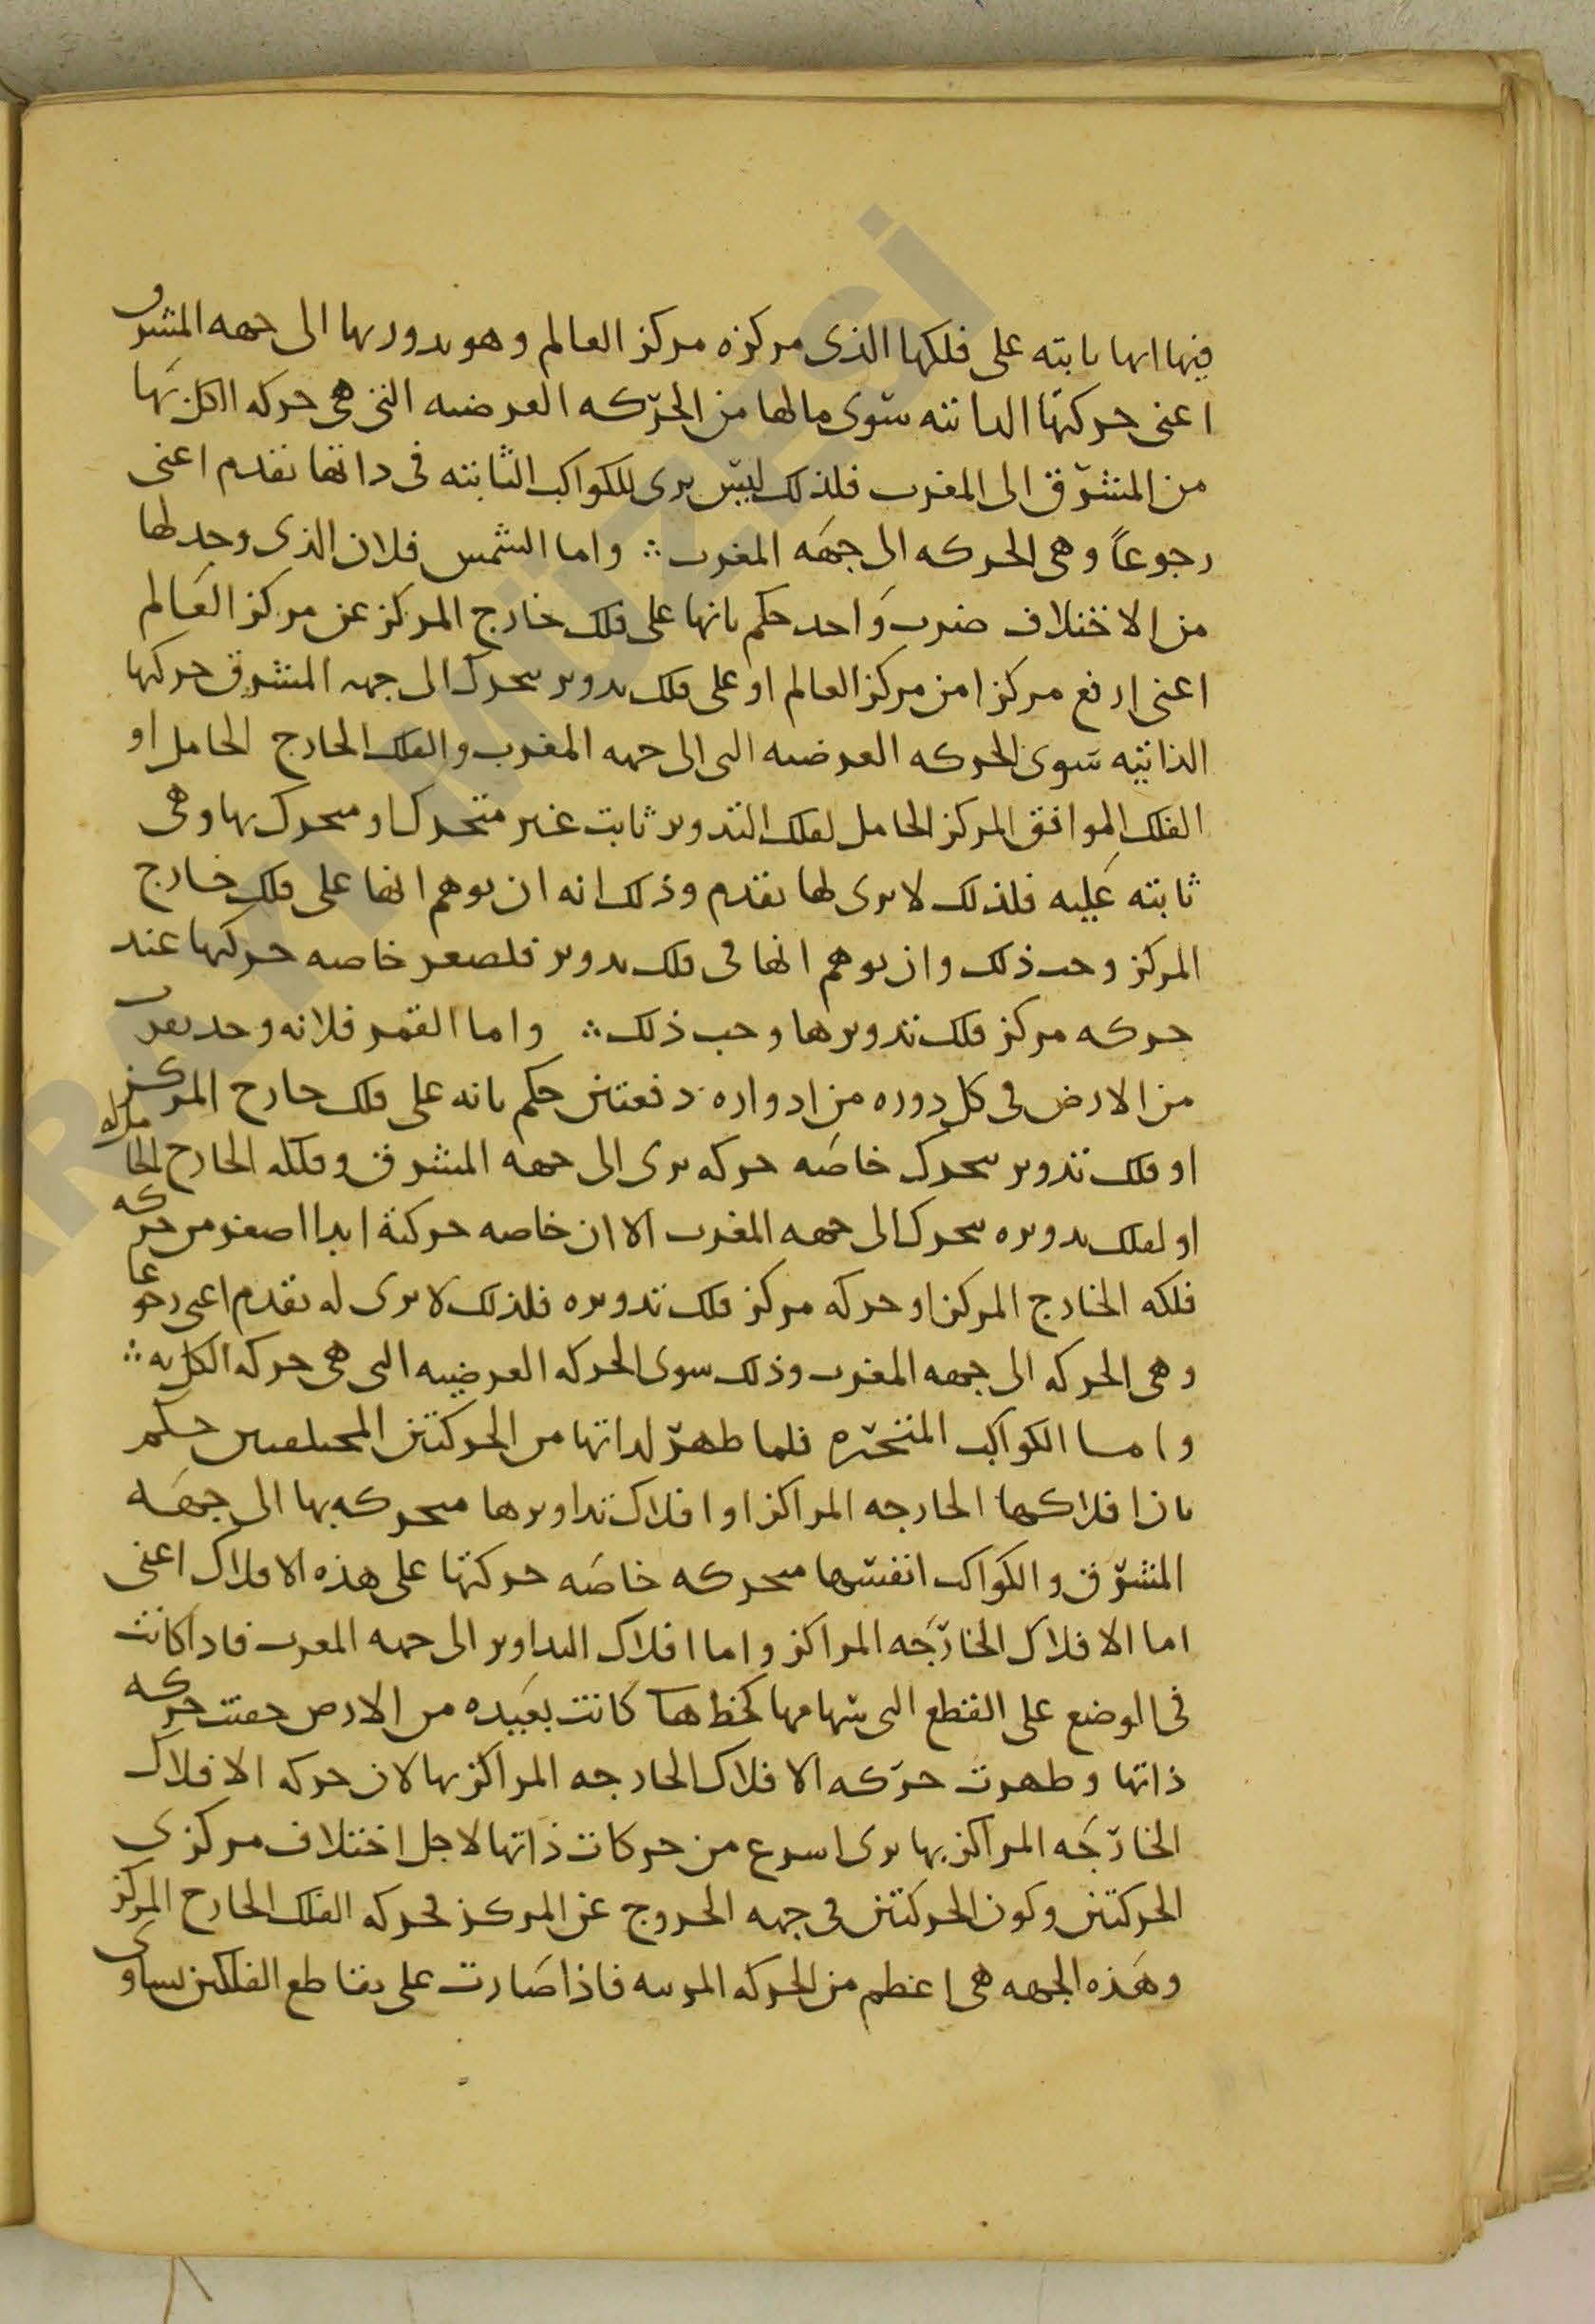 فيها انها ثابته على فلكها الذى مركزه مركز العالم وهو يدور بها الى جهه المشرق
اعنى حركتها الذاتيه سوى ما لها من الحركه العرضيه التى هى حركه الكل بها
من المشرق الى المغرب فلذلك ليس يرى للكواكب الثابته فى ذاتها تقدم اعنى
رجوعاً وهى الحركه الى جهه المغرب ∴ واما الشمس فلان الذى وجد لها
من الاختلاف ضرب واحد حكم بانها على فلك خارج المركز عن مركز العالم
اعنى ارفع مركزا من مركز العالم او على فلك تدوير يتحرك الى جهه المشرق حركتها
الذاتيه سوى الحركه العرضيه التى الى جهه المغرب والفلك الخارج الحامل او
الفلك الموافق المركز الحامل لفلك التدوير ثابت غير متحرك او متحرك بها وهى
ثابته عليه فلذلك لا يرى لها تقدم وذلك انه ان توهم انها على فلك خارج
المركز وجب ذلك وان توهم انها فى فلك تدوير فلصغر خاصه حركتها عند
حركه مركز فلك تدويرها وجب ذلك ∴ واما القمر فلانه وجد يقرب
من الارض فى كل دوره من ادواره دفعتين حكم بانه على فلك خارج المركز
او فلك تدوير يتحرك خاصه حركه يرى الى جهه المشرق وفلكه الخارج الحامل له
او لفلك تدويره يتحرك الى جهه المغرب الا ان خاصه حركته ابدا اصغر من حركه
فلكه الخارج المركز او حركه مركز فلك تدويره فلذلك لا يرى له تقدم اعنى رجوعا
وهى الحركه الى جهه المغرب وذلك سوى الحركه العرضيه التى هى حركه الكل به ∴
واما الكواكب المتحيره فلما ظهر لذاتها من الحركتين المختلفتين حكم
بان افلاكها الخارجه المراكز او افلاك تداويرها متحركه بها الى جهه
المشرق والكواكب انفسها متحركه خاصه حركتها على هذه الافلاك اعنى
اما الافلاك الخارجه المراكز واما افلاك التداوير الى جهه المغرب فاذا كانت
فى الوضع على القطع التى كانت بعيده من الارض خفيت حركه
ذاتها وظهرت حركه الافلاك الخارجه المراكز بها لان حركه الافلاك
الخارجه المراكز بها يرى اسرع من حركات ذاتها لاجل اختلاف مركزى
الحركتين وكون الحركتين فى جهه الخروج عن المركز فحركه الفلك الخارج المركز
وهذه الجهه هى اعظم من الحركه المرييه فاذا صارت على تقاطع الفلكين تساوى